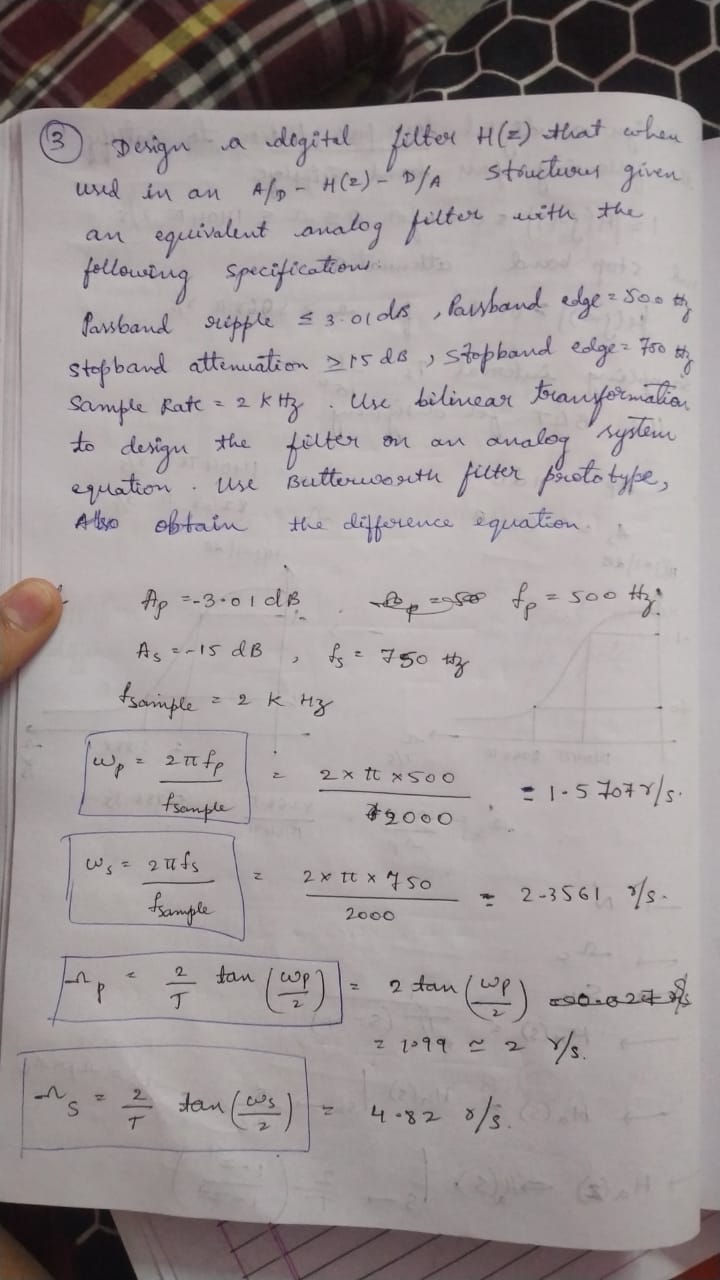 ③ Design a digital filter H(z) that when
used in an A/D - H(z) - D/A structures given
an equivalent analog filter with the
following specifications.
Passband ripple ≤ 3.01 dB , Passband edge = 500 Hz
stopband attenuation ≥ 15 dB , stopband edge = 750 Hz
Sample Rate = 2 K Hz . Use bilinear transformation
to design the filter on an analog system
equation . Use Butterworth filter prototype,
Also obtain the difference equation.
Ap = -3.01 dB. fp = 500 Hz.
As = -15 dB , fs = 750 Hz
fsample = 2 K Hz
ωp = 2πfp / fsample = 2 × π × 500 / 2000 = 1.5707 r/s.
ωs = 2πfs / fsample = 2 × π × 750 / 2000 = 2.3561 r/s.
Ωp = 2/T tan (ωp/2) = 2 tan (ωp/2)
= 1.99 ≃ 2 r/s.
Ωs = 2/T tan (ωs/2) = 4.82 r/s.